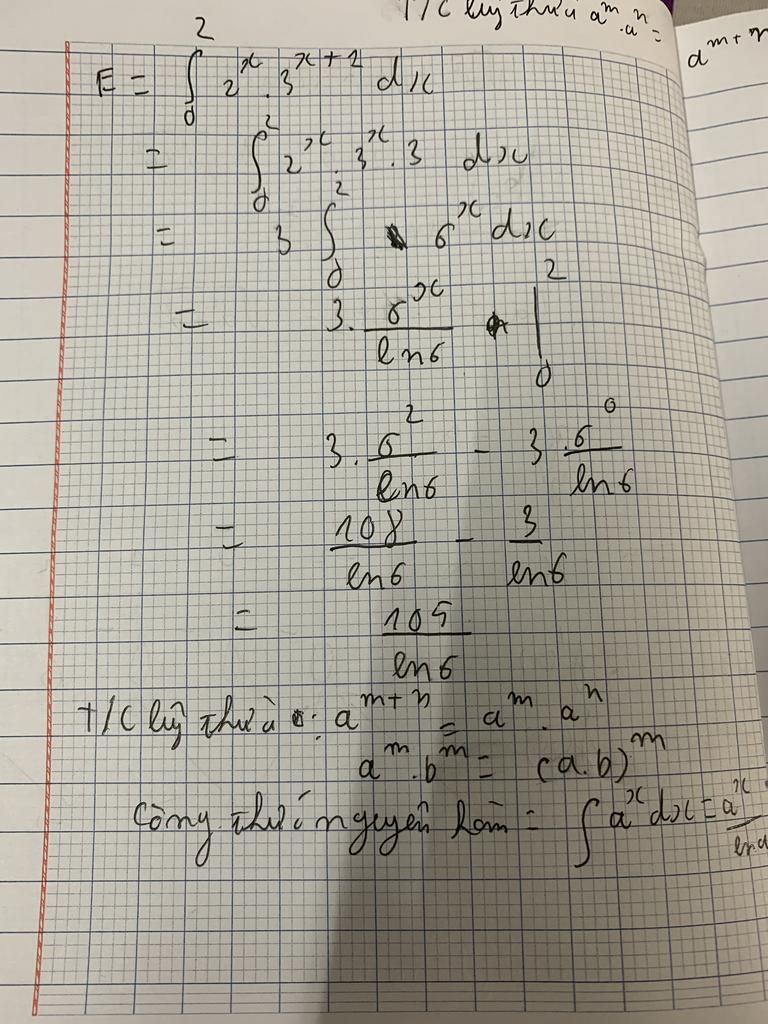 T/C luỹ thừa a^m . a^n =
a^{m+n}
E = ∫_0^2 2^x . 3^{x+1} dx
= ∫_0^2 2^x . 3^x . 3 dx
= 3 ∫_0^2 6^x dx
= 3. 6^x/ln6 |_0^2
= 3. 6^2/ln6 - 3 .6^0/ln6
= 108/ln6 - 3/ln6
= 105/ln6
T/C luỹ thừa : a^{m+n} = a^m . a^n
a^m . b^m = (a.b)^m
Công thức nguyên hàm = ∫ a^x dx = a^x/lna